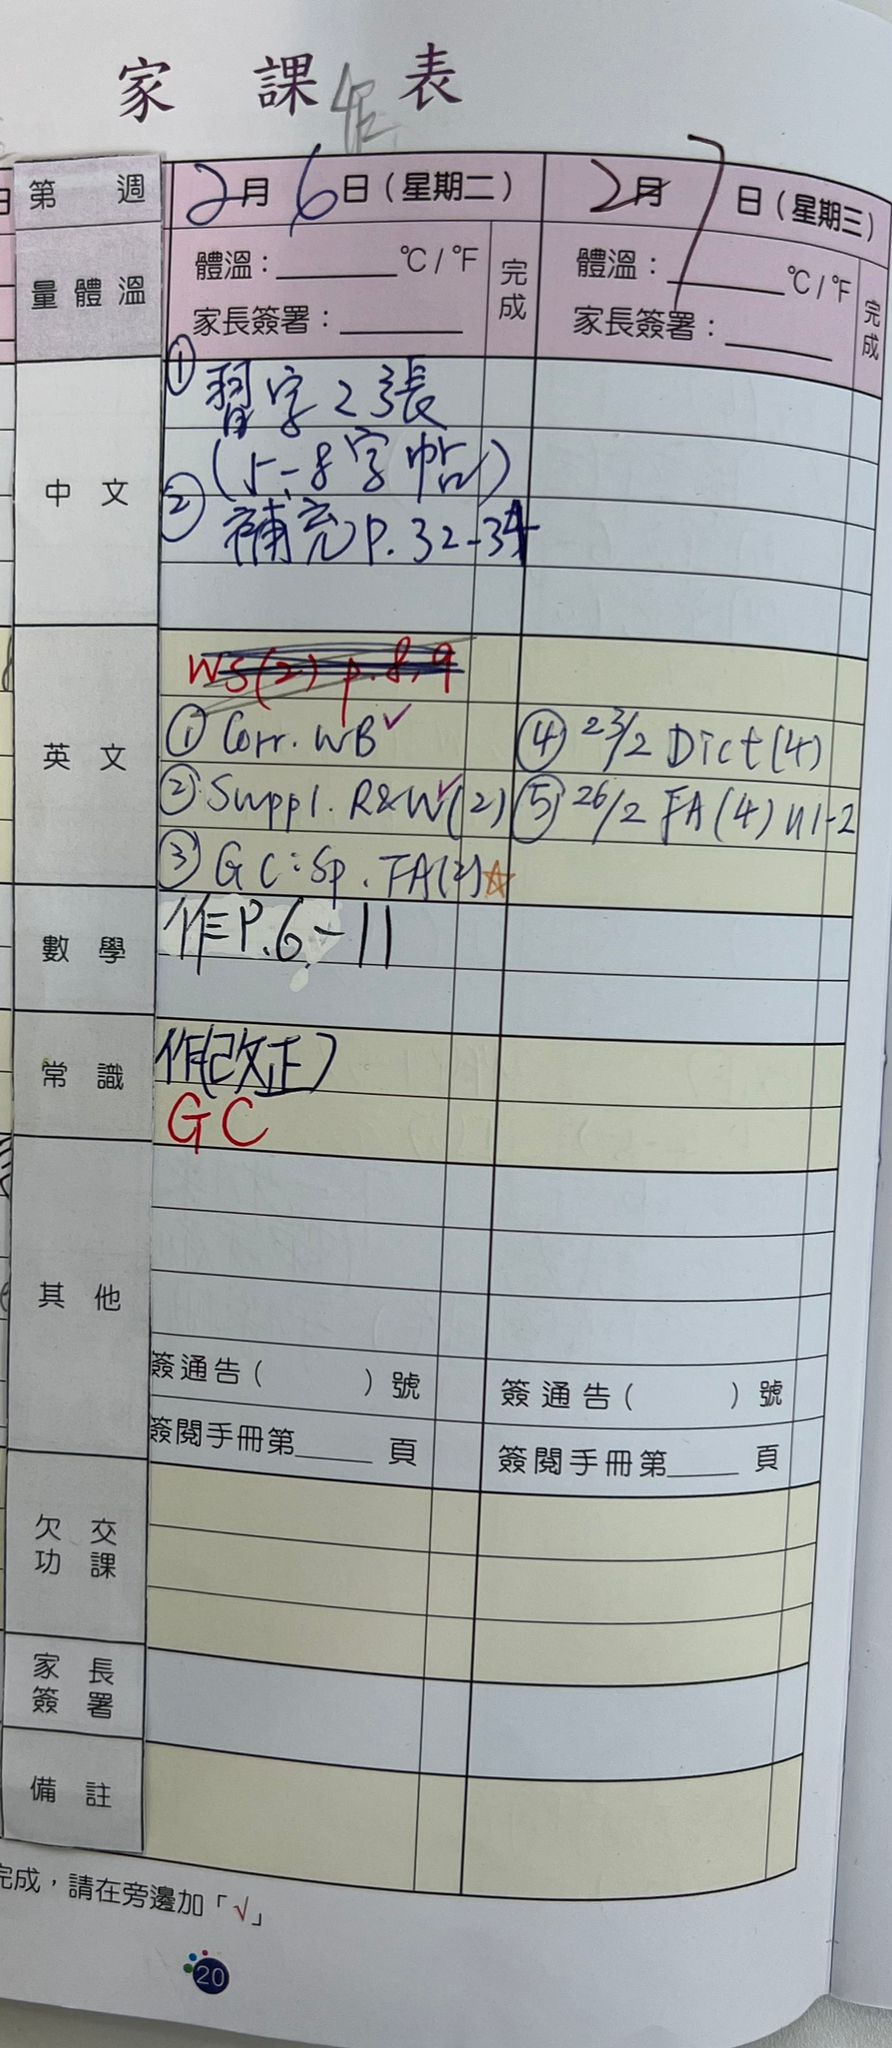 家課表
第 週
2月6日(星期二)
2月7日(星期三)
量體溫
體溫:______°C / °F
家長簽署:______
完成
體溫:______°C / °F
家長簽署:______
完成
中文
① 習字2張
(5-8字帖)
② 補充P.32-34
英文
WS(2) p.8,9
① Corr. WB ✓
② Suppl. R&W(2) ✓
③ GC: Sp. FA(2) ☆
④ 23/2 Dict(4)
⑤ 26/2 FA(4) U1-2
數學
作P.6-11
常識
作(改正)
GC
其他
簽通告( )號
簽閱手冊第____頁
簽通告( )號
簽閱手冊第____頁
欠交
功課
家長
簽署
備註
完成,請在旁邊加「√」
20